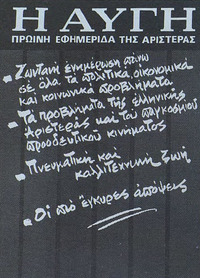 Η ΑΥΓΗ
ΠΡΩΙΝΗ ΕΦΗΜΕΡΙΔΑ ΤΗΣ ΑΡΙΣΤΕΡΑΣ
• Ζωντανή ενημέρωση πάνω
σε όλα τα πολιτικά, οικονομικά
και κοινωνικά προβλήματα
• Τα προβλήματα της ελληνικής
Αριστεράς και του παγκοσμίου
προοδευτικού κινήματος
• Πνευματική και
καλλιτεχνική ζωή
• Οι πιό έγκυρες απόψεις